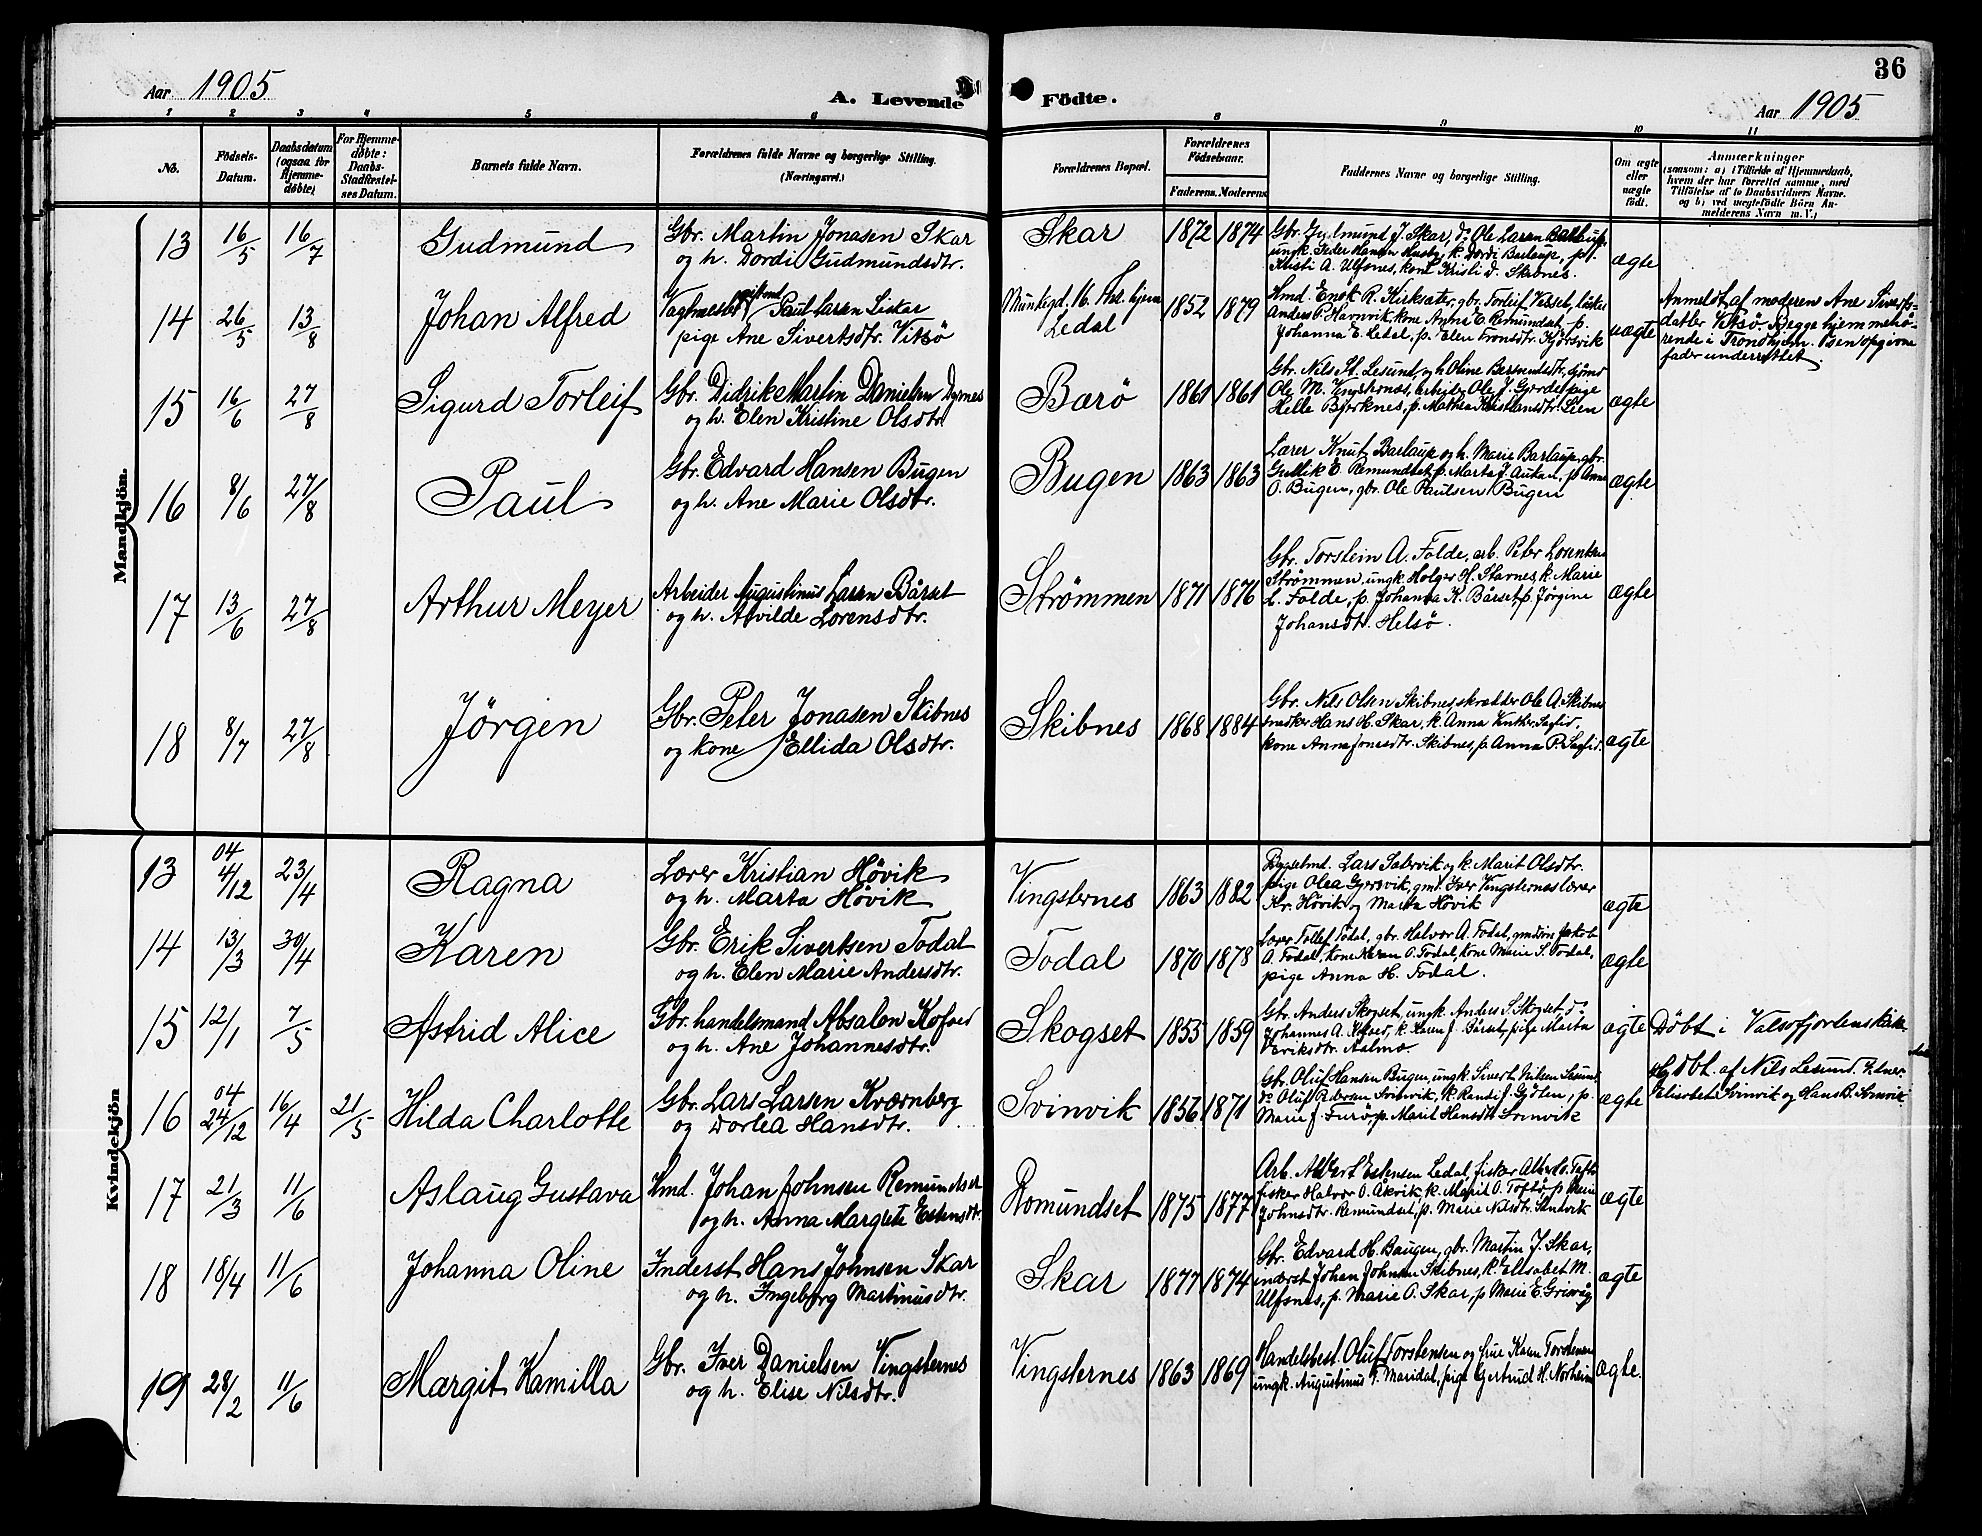 Aar 1905
A. Levende Födte.
36
Aar 1905
1 2 3 4 5 6 8 9 10 11
No.
Födsels-Datum.
Daabsdatum (ogsaa for Hjemme-döbte)
For Hjemme-döbte: Daabs-Stadfæstel-ses Datum.
Barnets fulde Navn.
Forældrenes fulde Navne og borgerlige Stilling.
(Næringsvei.)
Forældrenes Bopæl.
Forældrenes Födselsaar.
Faderens. Moderens.
Faddernes Navne og borgerlige Stilling.
Om ægte eller uægte födt.
Anmærkninger
(saasom: a) i Tilfælde af Hjemmedaab,
hvem der har forrettet samme, med
Tilföielse af to Daabsvidners Navne.
og b) ved uægtefödte Börn An-
melderens Navn m. V.)
Mandkjön.
13 16/5 16/7 Gudmund
Gbr. Martin Jonasen Skar
og h. Dordi Gudmundsdtr.
Skar 1872 1874
Gbr. Gudmund J. Skar, do Ole Larsen Barlaup,
ungk. Peder Hansen Husby, k. Dordi Barlaup, p.
Kristi A. Ulfsnes, kone Kristi d. Skibnes.
ægte
14 26/5 13/8 Johan Alfred
giftmd
Paul Larsen
pige Ane Sivertsdtr. Vitsö
Ledal 1852 1879
Hmd. Enok R. Kirksæter, gbr. Torleif Vesset, fisker
Anders P. Havnvik, kone Anne E. Remundset, p.
Johanna E. Ledal, p. Elen Tronsdtr. Kjörsvik
uægte
Anmeldt af moderen Ane Siverts-
datter Vitsö. Begge hjemmehö-
rende i Trondhjem. Den opgivne
fader underrettet.
15 16/6 27/8 Sigurd Torleif
Gbr. Didrik Martin Danielsen Dyrnes
og h. Elen Kristine Olsdtr.
Barö 1861 1861
Gbr. Nils St. Lesund, og h. Oline Berntsdtr.
Ole M. Vingsternes, arbeider Ole J. Gjerde, pige
Helle Bjerknes, p. Mathea Kristiansdtr. Lien
ægte
16 8/6 27/8 Paul
Gbr. Edvard Hansen Bugen
og h. Ane Marie Olsdtr.
Bugen 1863 1863
Lærer Knut Barlaup og h. Marie Barlaup, gbr.
Gullik E. Remundset, p. Marta J. Aukan, p. Anne
O. Bugen, gbr. Ole Paulsen Bugen
ægte
17 13/6 27/8 Arthur Meyer
Arbeider Augustinus Larsen Bårset
og h. Alvilde Lorensdtr.
Strömmen 1871 1876
Gbr. Torstein A. Folde, arb. Peter Lorentsen
Strömmen, ungk. Holger H. Stavnes, k. Marie
L. Folde, p. Johanna K. Bårset, p. Jörgine
Johansdtr. Helsö.
ægte
18 8/7 27/8 Jörgen
Gbr. Peter Jonasen Skibnes
og kone Ellida Olsdtr.
Skibnes 1868 1884
Gbr. Nils Olsen Skibnes, skrædder Ole A. Skibnes
snedker Hans H. Skar, k. Anna
kone Anna Jonasdtr. Skibnes, p. Anna P.
ægte
Kvindekjön
13 04 4/12 23/4 Ragna
Lærer Kristian Hövik
og h. Marta Hövik
Vingsternes 1863 1882
Bygselmd. Lars Sætervik og k. Marit Olsdtr.
pige Olea Gjersvik, gmd. Iver Vingsternes, lærer
Kr. Hövik og Marta Hövik
ægte
14 13/3 30/4 Karen
Gbr. Erik Sivertsen Todal
og h. Elen Marie Andersdtr.
Todal 1870 1878
Lærer Tollef Todal, gbr. Halvor A. Todal, Jakob
A. Todal, kone Karen O. Todal, kone Marie S. Todal,
pige Anna H. Todal.
ægte
15 12/1 7/5 Astrid Alice
Gbr. handelsmand Absalon Kofoed
og h. Ane Johannesdtr.
Skogset 1855 1859
Gbr. Anders Skogset, ungk. Anders S. Skogset, do
Johannes A. Skogset, k. Karen J. Bårset, pige Marta
Eriksdtr. Aalmo.
ægte
Döbt i Valsöfjordens kirke
16 04 24/12 16/4 21/5 Hilda Charlotte
Gbr. Lars Larsen Kværnberg
og Dorlea Hansdtr.
Svinvik 1856 1871
Gbr. Oluf Hansen Bugen, ungk. Sivert Nilsen Lesund
do Oluf Svinvik, k. Randi J. Gjölen, p.
Marie J. Furö, p. Marit Hansdtr. Svinvik
ægte
Hjdöbt. af Nils Lesund. Vidner:
Elisabeth Svinvik og Hans B. Svinvik
17 21/3 11/6 Aslaug Gustava
Hmd. Johan Johnsen Remundset
og h. Anna Margrete Estensdtr.
Romundset 1875 1877
Arb. Albert Estensen Ledal, fisker Albert O. Tofte
fisker Halvor O. Åkvik, k. Marit O. Toftö, p. Marie
Johnsdtr. Remundset, p. Marie Nilsdtr. Sandvik
ægte
18 18/4 11/6 Johanna Oline
Inderst Hans Johnsen Skar
og h. Ingeborg Martinusdtr.
Skar 1877 1874
Gbr. Edvard H. Baugen, gbr. Martin J. Skar,
inderst Johan Johnsen Skibnes, k. Elisabet M.
Ulfsnes, p. Marie O. Skar, p. Marie E. Grisvåg
ægte
19 28/2 11/6 Margit Kamilla
Gbr. Iver Danielsen Vingsternes
og h. Elise Nilsdtr.
Vingsternes 1863 1869
Handelsbest. Oluf Torstensen og frue Karen Torstensen
ungk. Augustinus T. Maridal, pige Gjertrud H. Norheim
ægte.